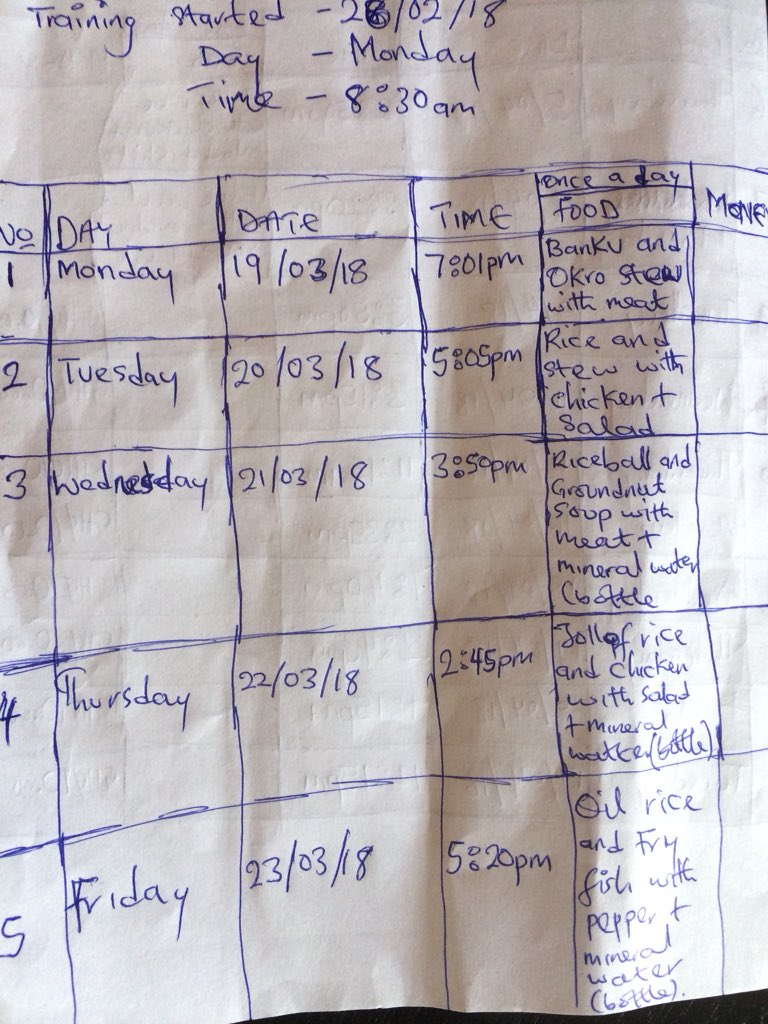 Training started - 26/02/18
Day - Monday
Time - 8:30am
No DAY DATE TIME once a day FOOD MONE
1 Monday 19/03/18 7:01pm Banku and
Okro stew
with meat
2 Tuesday 20/03/18 5:05pm Rice and
stew with
chicken +
Salad
3 Wednesday 21/03/18 3:50pm Riceball and
Groundnut
Soup with
meat +
mineral water
(bottle
4 Thursday 22/03/18 2:45pm Jollof rice
and chicken
with salad
+ mineral
watter(bottle)
5 Friday 23/03/18 5:20pm Oil rice
and Fry
fish with
pepper +
mineral
water
(bottle).